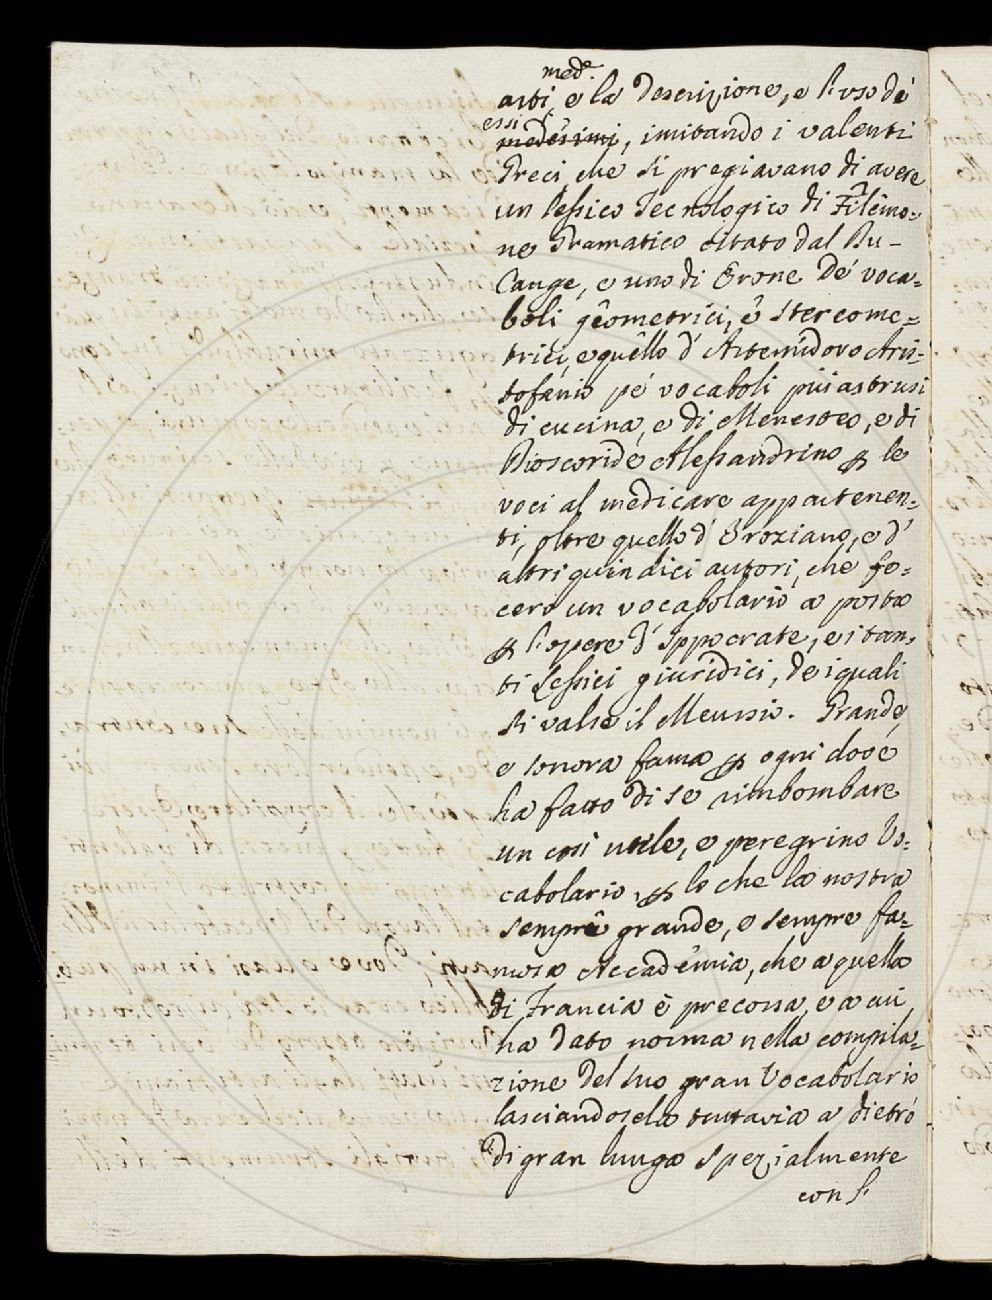 med.e
arti, e la descrizione, e l'uso dé
essi
medesimi, imitando i valenti
Greci che si pregiavano di avere
un lessico Tecnologico di Filémo=
ne Gramatico citato dal Du-
Cange, e uno di Erone dé voca=
boli géometrici, é stercome=
trici, e quéllo d'Artemidoro Aris-
tofanio pé vocaboli più astrusi
di cucina, e di Menesteo, e di
Dioscoride Alessandrino p le
voci al medicare appartenen=
ti, oltre quello d'Eroziano, e d'
altri quindici autori, che fe=
cero un vocabolario a posta
p l'opere d'Ippocrate, e i tan,
ti Lessici giuridici, de i quali
si valse il Meursio. Grande,
e sonora fama p ogni dové
ha fatto di se rimbombare
un così utile, e peregrino Vo=
cabolario, p lo che la nostra
sempre grande, e sempre fa=
mosa Accadémia, che a quella
di Francia è precorsa, e a cui
ha dato norma nella compila=
zione del suo gran Vocabolario
lasciandosela tuttavia a dietró
di gran lunga spezialmente
con l'